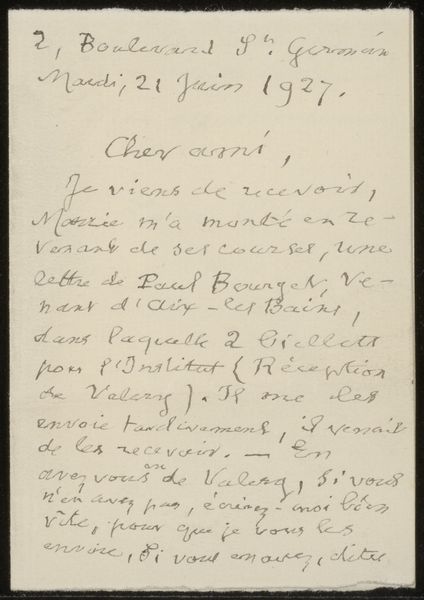 2, Boulevard St. Germain
Mardi, 21 Juin 1927.
Cher ami,
Je viens de recevoir,
Marie m'a monté en re-
venant de ses courses, une
lettre de Paul Bourget, ve-
nant d'Aix-les Bains,
dans laquelle 2 billets
pour l'Institut (Réception
de Valery). Il me les
envoie tardivement, il venait
de les recevoir. — En
avez vous eu de Valery, si vous
n'en avez pas, écrivez-moi bien
vite, pour que je vous les
envoie, si vous en avez, dites